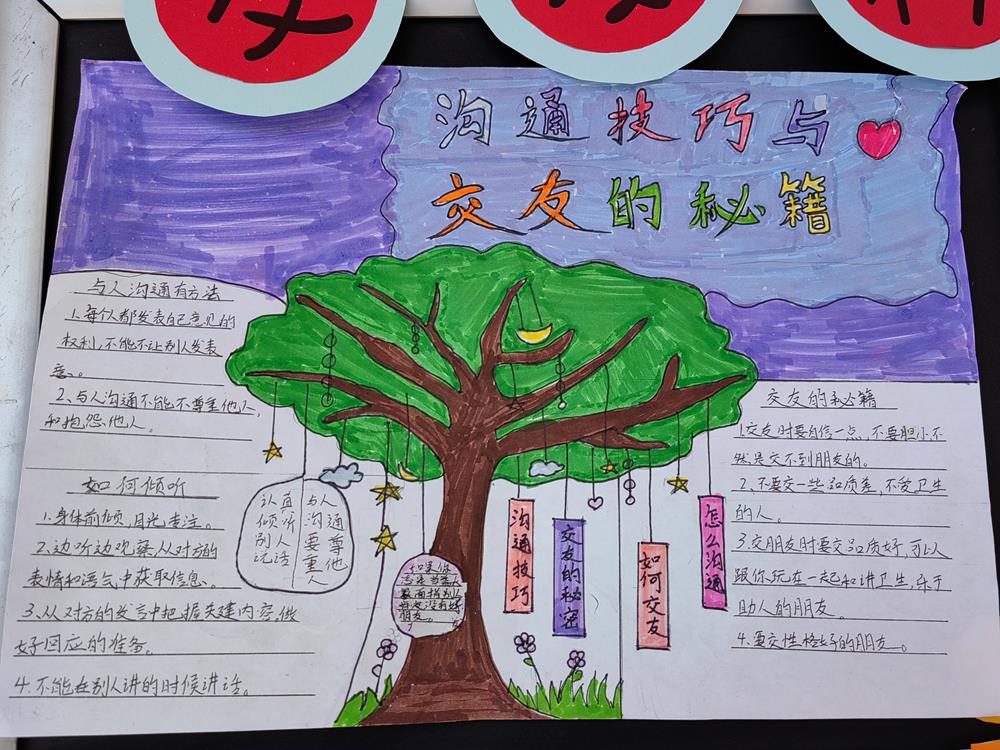 沟通技巧与
交友的秘籍
与人沟通有方法
1.每个人都发表自己意见的
权利,不能不让别人发表
意。
2、与人沟通不能不尊重他人,
和抱怨他人。
如何倾听
1.身体前倾,目光专注。
2.边听边观察,从对方的
表情和语气中获取信息。
3、从对方的发言中把握关键内容,做
好回应的准备。
4.不能在别人讲的时候讲话。
与人
沟通
要尊
重他
人
认真
倾听
别人
说话
朋友。
沟通技巧
交友的秘密
如何交友
怎么沟通
交友的秘籍
1.交友时要自信一点,不要胆小不
然是交不到朋友的。
2、不要交一些品质差,不爱卫生
的人。
3.交朋友时要交品质好,可以
跟你玩在一起和讲卫生,乐于
助人的朋友。
4.要交性格好的朋友。